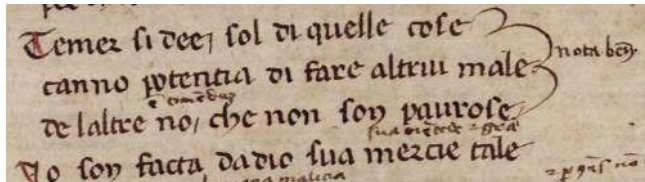 Temer si dee, sol di quelle cose
nota ben
canno potentia di fare altrui male
de laltre no, che non son paurose
Io son facta dadio sua mercie tale